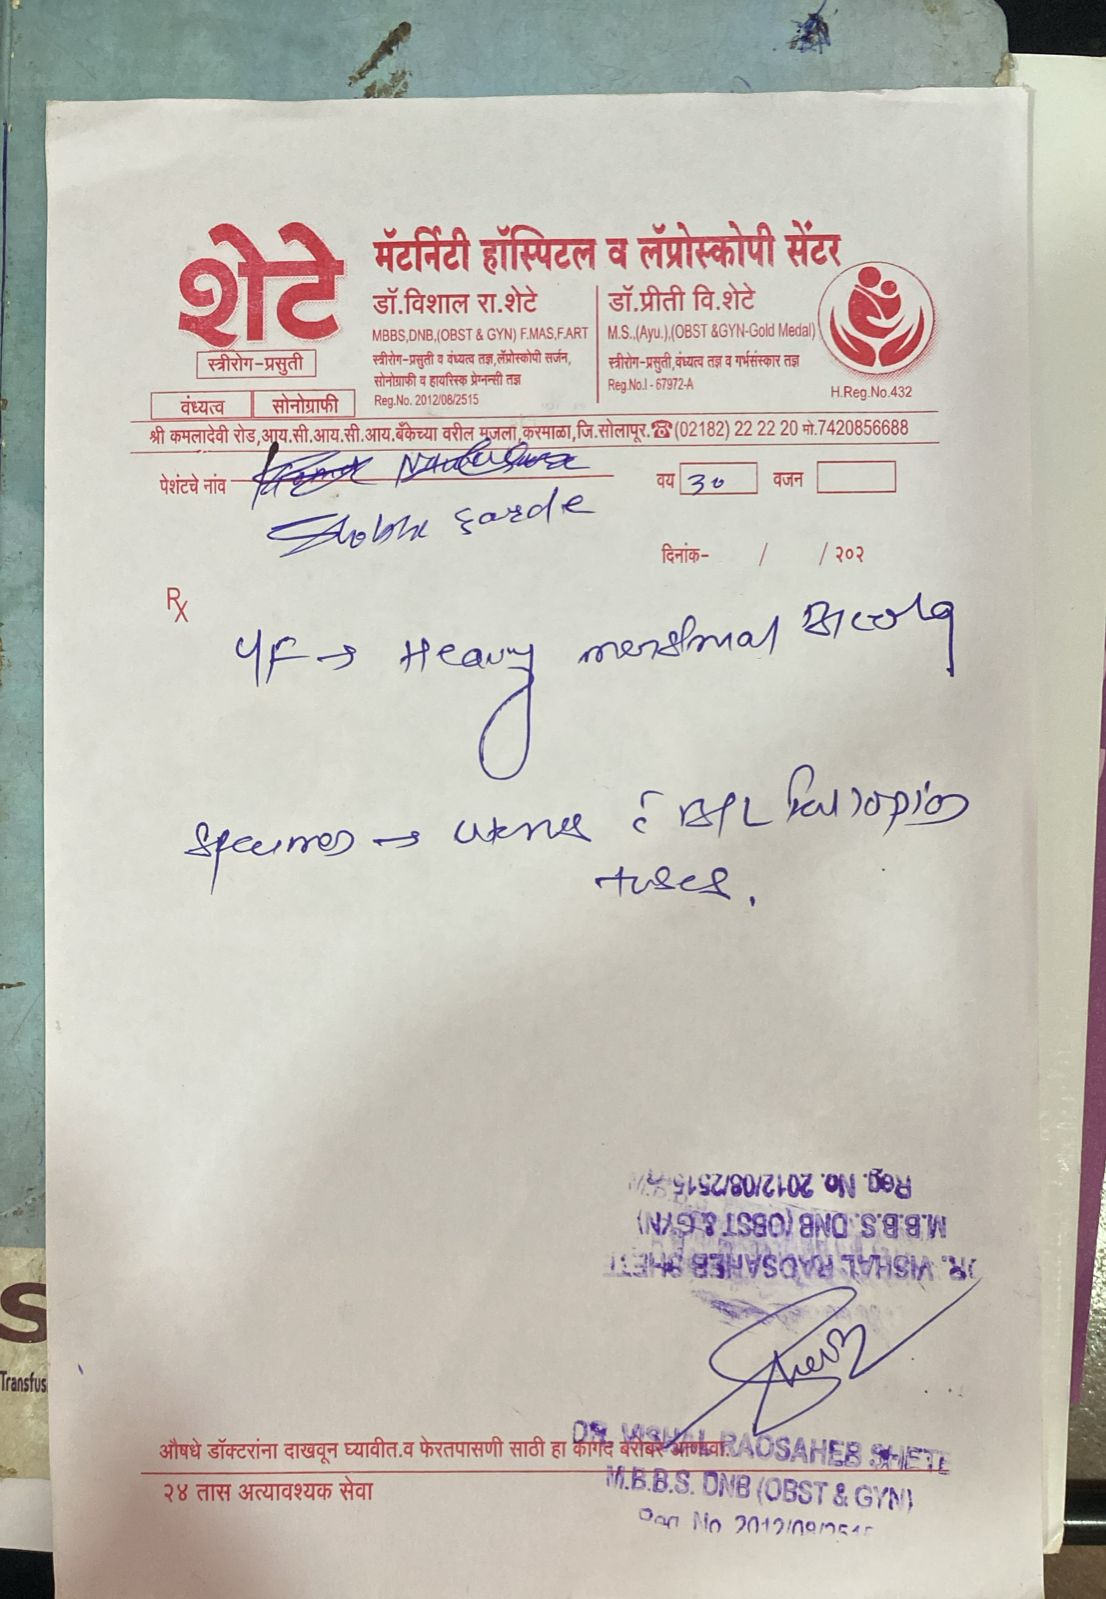 शेटे
मॅटर्निटी हॉस्पिटल व लॅप्रोस्कोपी सेंटर
स्त्रीरोग-प्रसुती
वंध्यत्व सोनोग्राफी
डॉ.विशाल रा.शेटे
MBBS,DNB,(OBST & GYN) F.MAS,F.ART
स्त्रीरोग-प्रसुती व वंध्यत्व तज्ञ,लॅप्रोस्कोपी सर्जन,
सोनोग्राफी व हायरिस्क प्रेग्नन्सी तज्ञ
Reg.No. 2012/08/2515
डॉ.प्रीती वि.शेटे
M.S.,(Ayu.),(OBST &GYN-Gold Medal)
स्त्रीरोग-प्रसुती,वंध्यत्व तज्ञ व गर्भसंस्कार तज्ञ
Reg.No.I - 67972-A
H.Reg.No.432
श्री कमलादेवी रोड,आय.सी.आय.सी.आय.बँकेच्या वरील मजला,करमाळा,जि.सोलापूर.☎(02182) 22 22 20 मो.7420856688
पेशंटचे नांव वय 30 वजन
दिनांक- / / २०२
Rx
→ Heavy menstrual
Specimen → uterus c̄ B/L Fallopian
tubes.
Reg. No. 2012/08/2515
M.B.B.S. DNB (OBST & GYN)
DR. VISHAL RAOSAHEB SHETE
औषधे डॉक्टरांना दाखवून घ्यावीत.व फेरतपासणी साठी हा कागद बरोबर आणावा.
DR. VISHAL RAOSAHEB SHETE
२४ तास अत्यावश्यक सेवा
M.B.B.S. DNB (OBST & GYN)
Reg. No. 2012/08/2515
S
Transfus